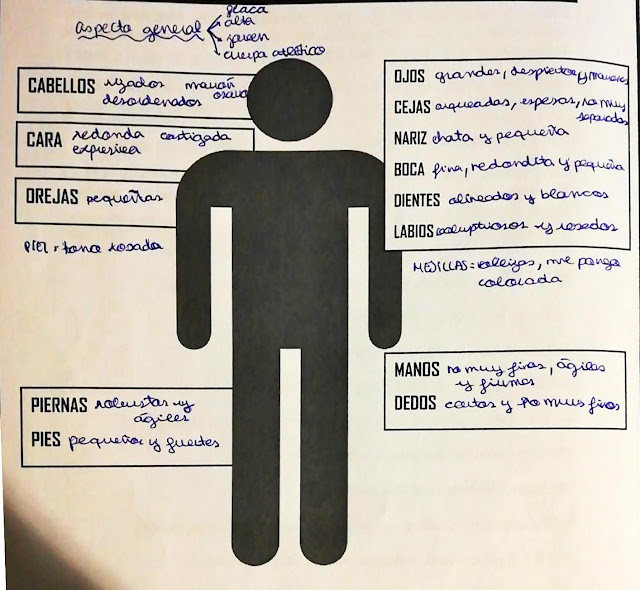 flaca
aspecto general alta
joven
cuerpo atlético
CABELLOS rizados marrón
desordenados oscuro
CARA redonda castigada
expresiva
OREJAS pequeñas
PIEL = tono rosado
PIERNAS robustas y
ágiles
PIES pequeños y fuertes
OJOS grandes, despiertos y marrones
CEJAS arqueadas, espesas, no muy
separadas
NARIZ chata y pequeña
BOCA fina, redondita y pequeña
DIENTES alineados y blancos
LABIOS voluptuosos y rosados
MEJILLAS = rollizas, me pongo
colorada
MANOS no muy finas, ágiles
y firmes
DEDOS cortos y no muy finos